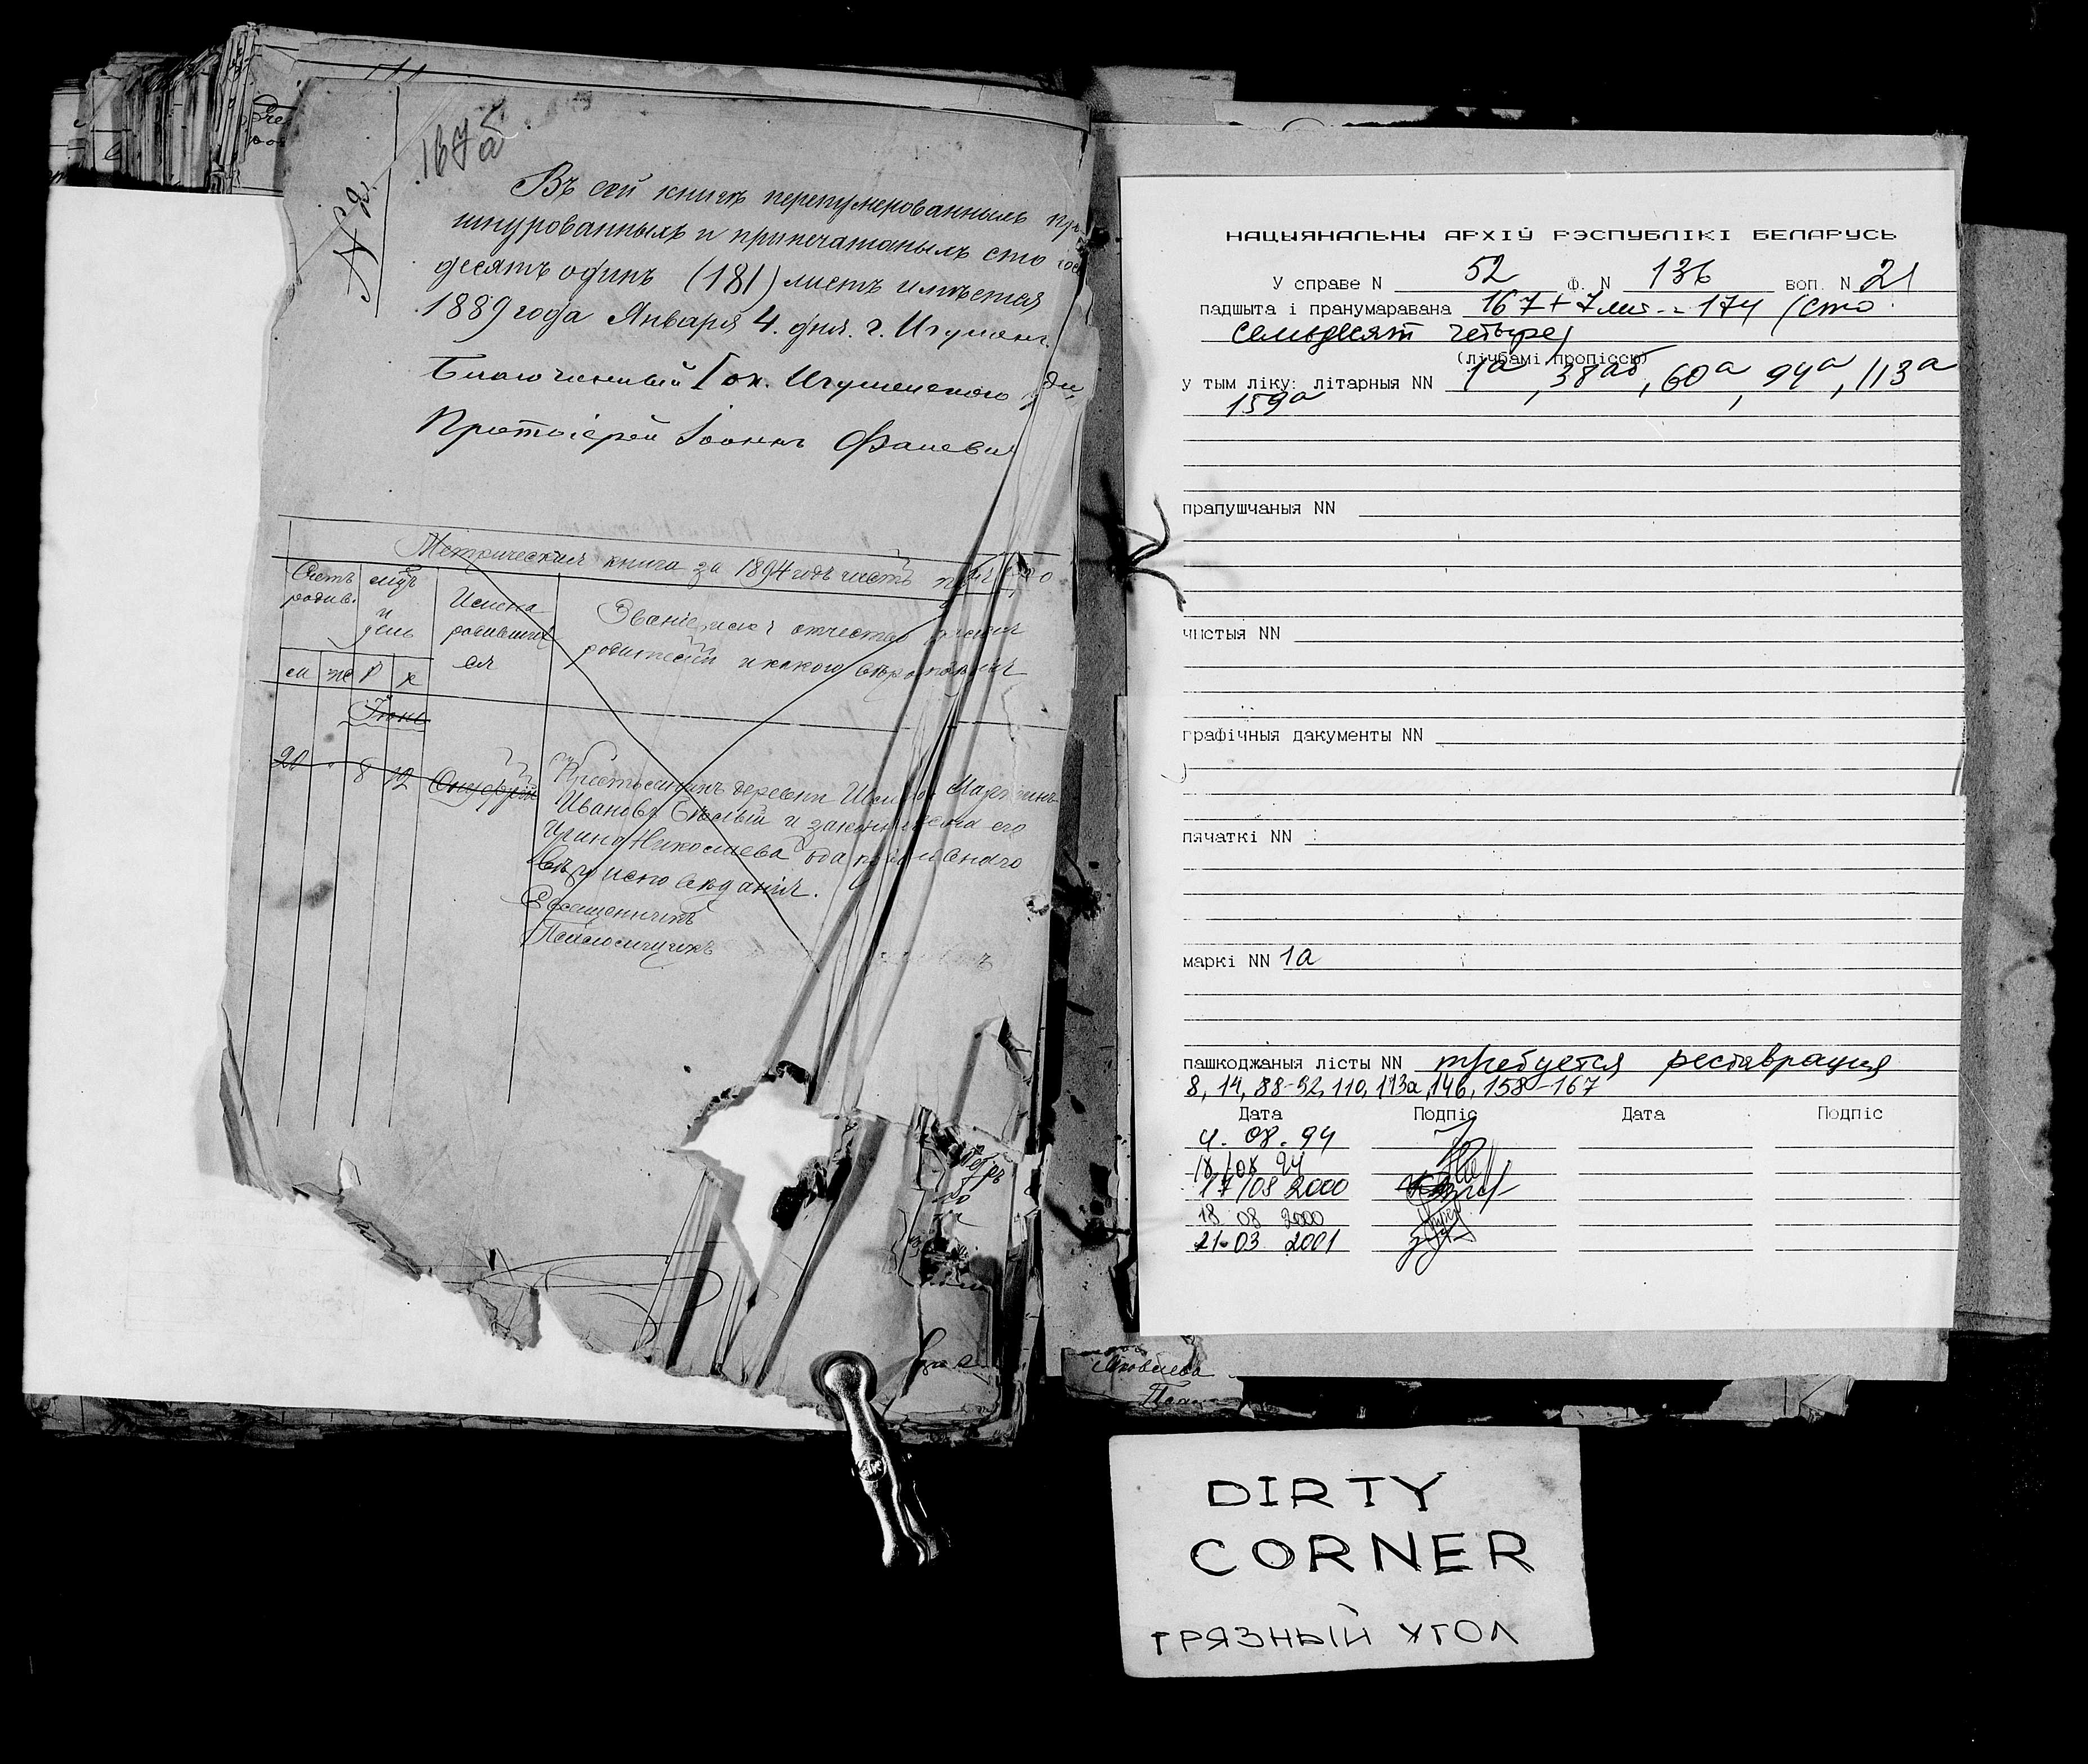 167б
№ 2.
Въ сей книгѣ перенумерованныхъ
шнурованныхъ и припечатаныхъ сто
десятъ одинъ (181) листъ имѣется
1889 года Января 4. дня. г. Игуменъ.
Благочинный I ок. Игуменского
Протоіерей Іоаннъ
Метрическая книга за 1894 годъ часть
Счетъ родив.
мѣсяцъ и день
Имена родившихся
Званіе, имя, отчество
родителей и какого вѣроисповѣданія
м же р к
Іюнь
20 " 8 12 Онуфрій
Крестьянинъ деревни
Ивановъ и законная жена его
Ирина Николаева оба православнаго
вѣроисповѣданія.
Священникъ
Псаломщикъ
НАЦЫЯНАЛЬНЫ АРХІЎ РЭСПУБЛІКІ БЕЛАРУСЬ
У справе N 52 ф. N 136 воп. N 21
падшыта і пранумаравана 167+7лит.=174 (сто
семьдесят четыре)
(лічбамі пропіссю)
у тым ліку: літарныя NN 1а, 38аб, 60а, 94а, 113а
159а
прапушчаныя NN
чыстыя NN
графічныя дакументы NN
пячаткі NN
маркі NN 1а
пашкоджаныя лісты NN требуется реставрация
8, 14, 88-92, 110, 113а, 146, 158-167
Дата Подпіс Дата Подпіс
4. 08. 94
18/08 94
17/08 2000
18 08 2000
21.03 2001
Яковлева
DIRTY
CORNER
ГРЯЗНЫЙ УГОЛ